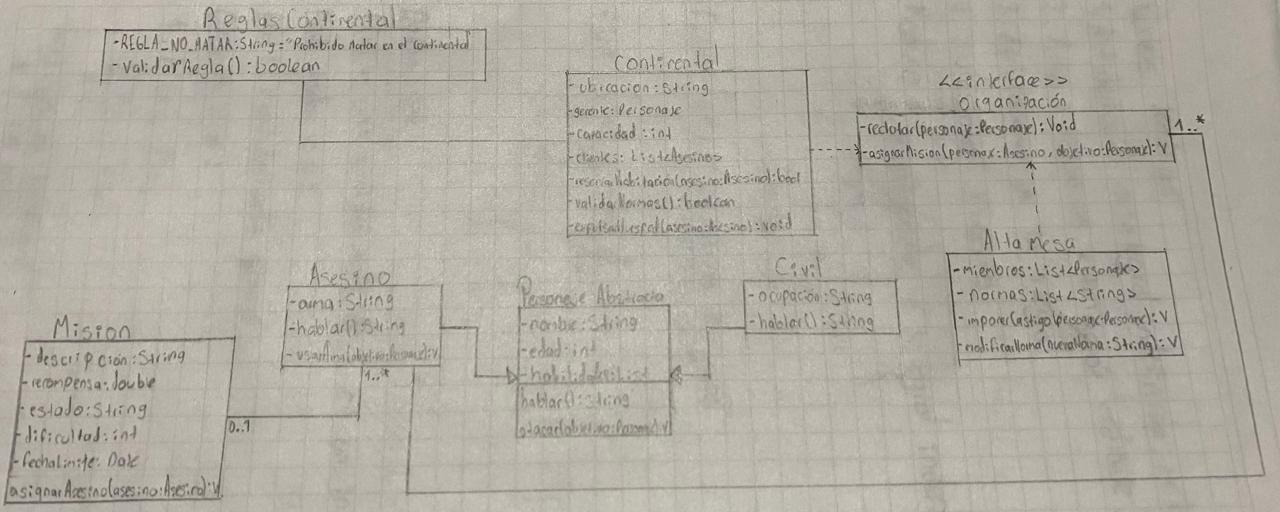 Reglas Continental
-REGLA_NO_MATAR:String="Prohibido Matar en el Continental"
-ValidarRegla():boolean
Continental
-ubicacion:String
-gerente:Personaje
-capacidad:int
-clientes:List<Asesinos>
-reservarHabitacion(asesino:Asesino):bool
-validarNormas():boolean
(asesino:Asesino):Void
<<interface>>
Organización
-reclutar(personaje:Personaje):Void
-asignarMision(personaje:Asesino, objetivo:Personaje):V
1..*
Alta Mesa
-miembros:List<Personaje>
-normas:List<String>
-imponerCastigo(personaje:Personaje):V
-modificarNorma(nuevaNorma:String):V
Asesino
-arma:String
-hablar():String
-usarArma(objetivo:Personaje):V
1..*
Personaje Abstracta
-nombre:String
-edad:int
-habilidades:List
hablar():String
atacar(objetivo:Personaje):V
Civil
-ocupación:String
-hablar():String
Mision
-descripción:String
-recompensa:double
-estado:String
-dificultad:int
-fechalimite:Date
asignarAsesino(asesino:Asesino):V
0..1